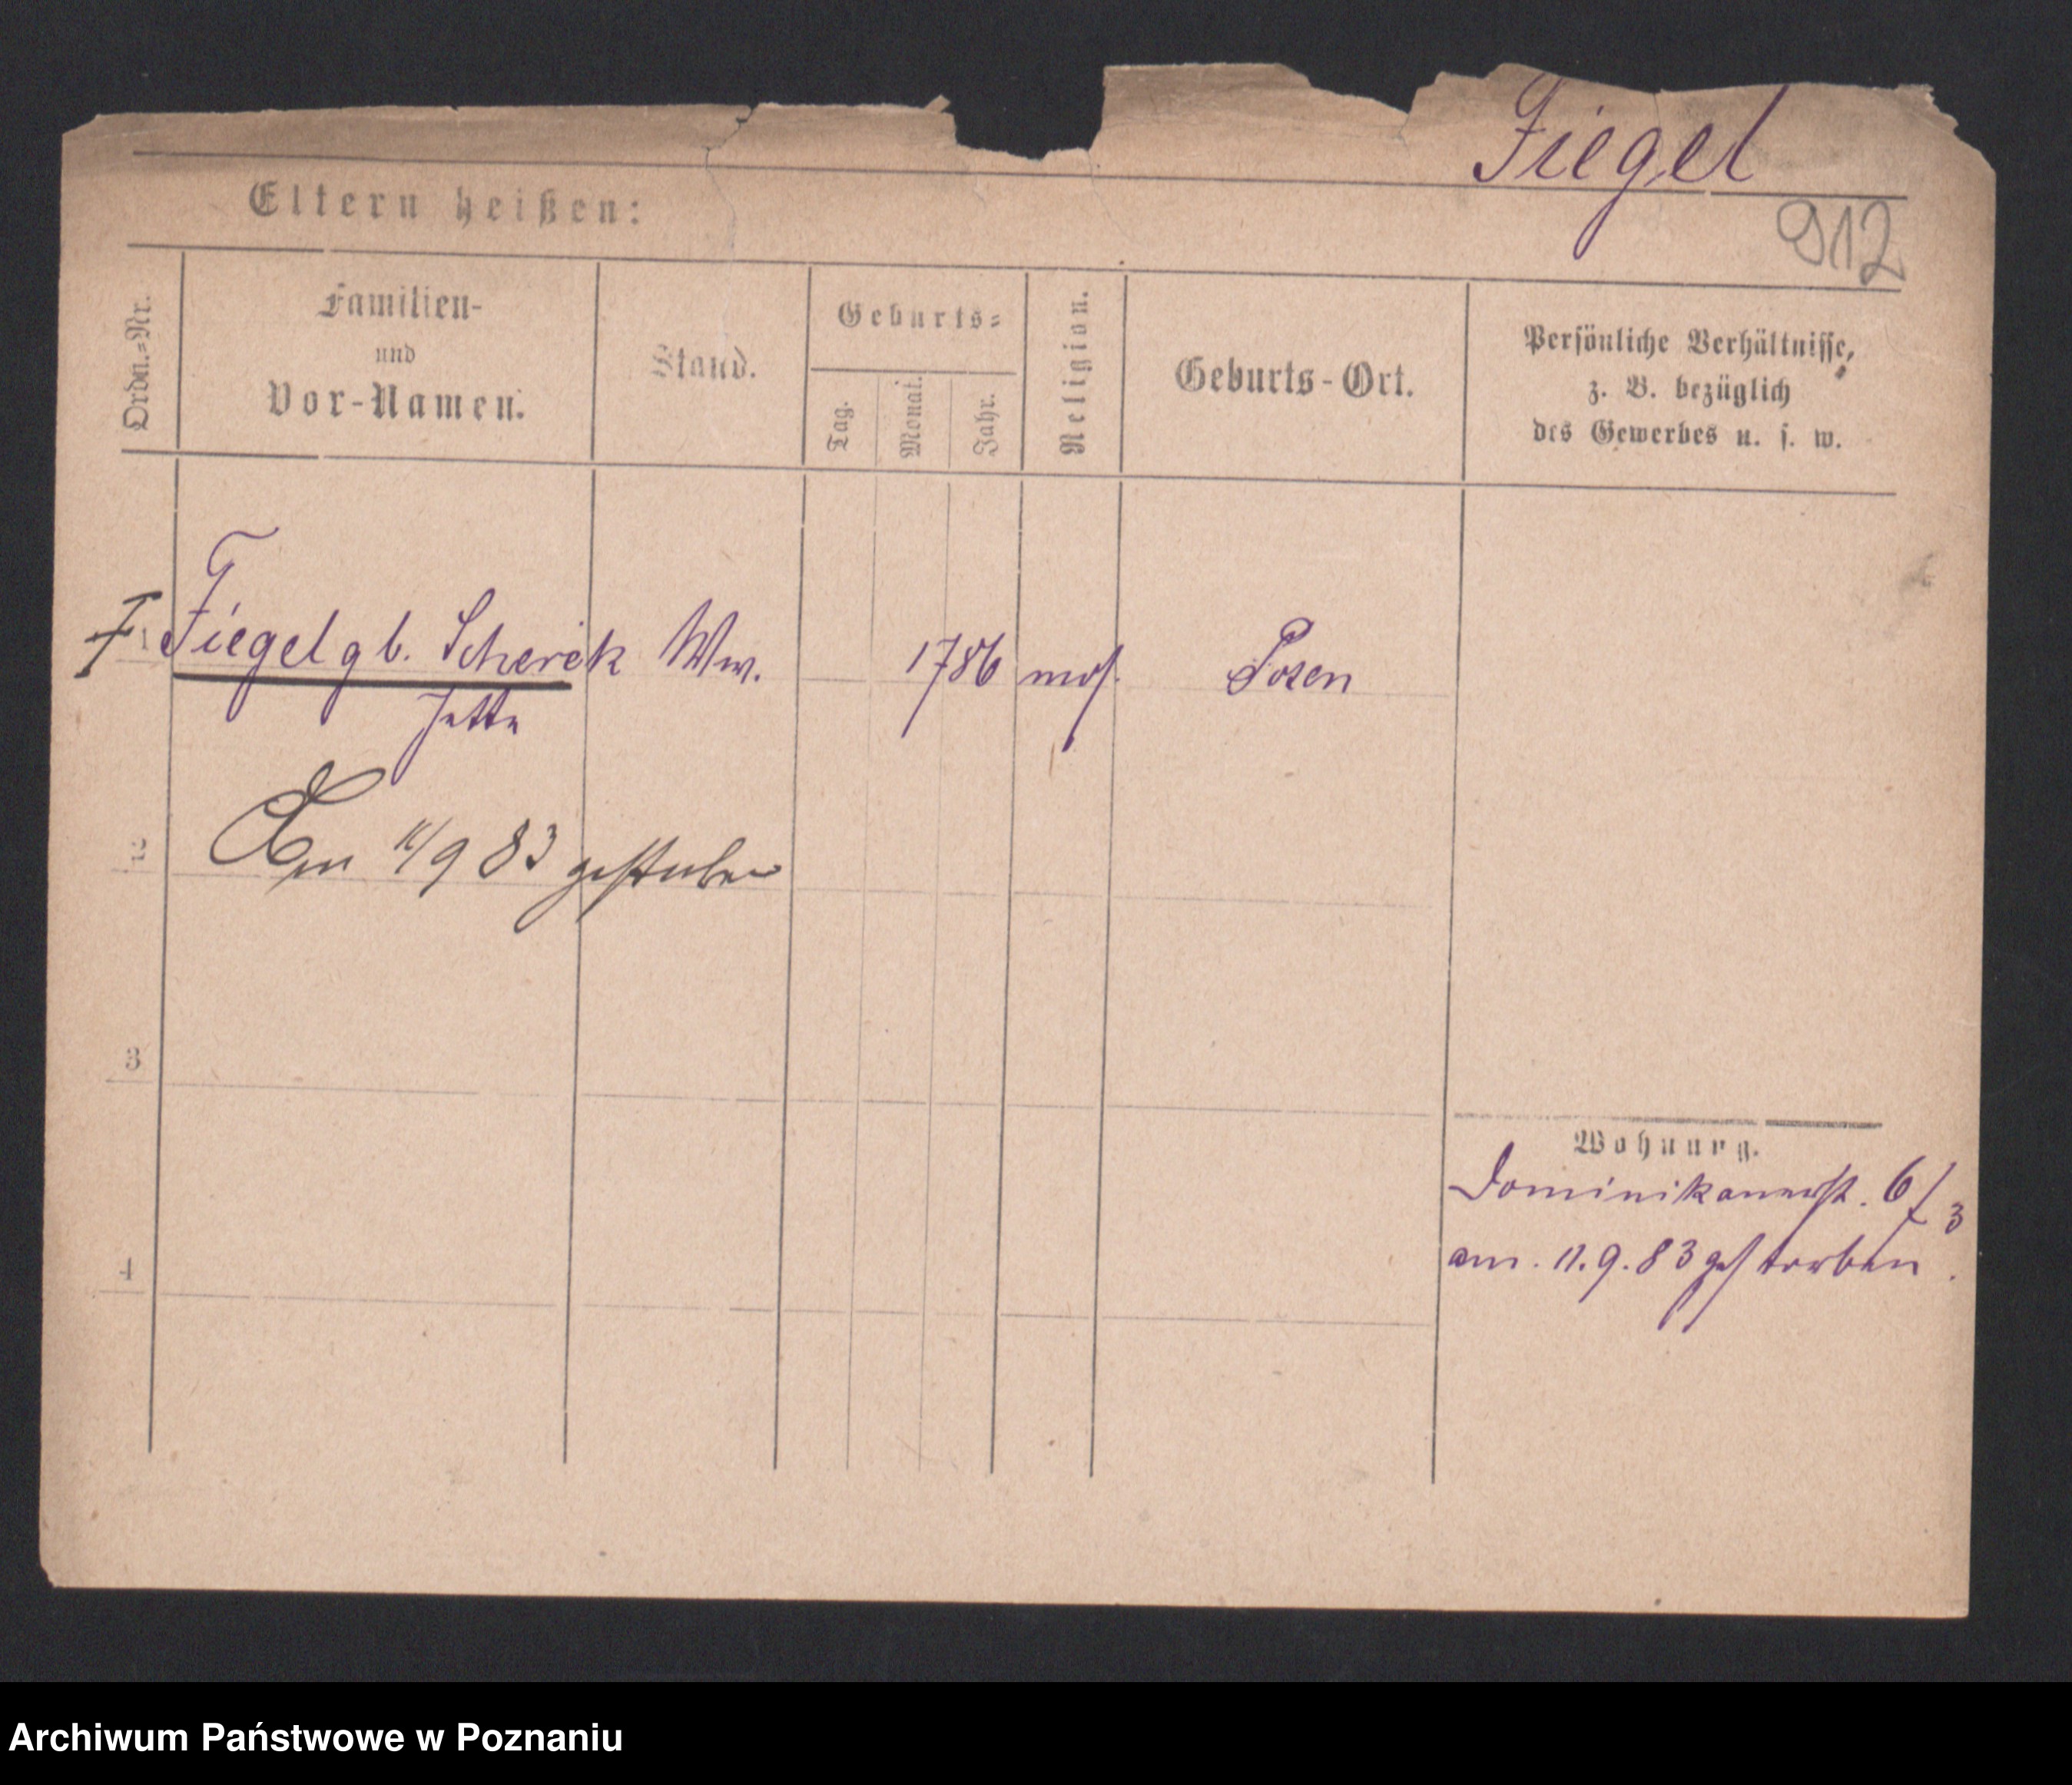 Fiegel
Eltern heißen:
912
Ordn.=Nr.
Familien-
und
Vor-Namen.
Stand.
Geburts=
Tag.
Monat.
Jahr.
Religion.
Geburts-Ort.
Persönliche Verhältnisse,
z. B. bezüglich
des Gewerbes u. s. w.
1 Fiegel gb. Scherek Ww. 1786 mos. Posen
Jette
2
Am 11/9 83 gestorben
3
Wohnung.
Dominikanerst. 6/3
4
am. 11.9.83 gestorben.
Archiwum Państwowe w Poznaniu